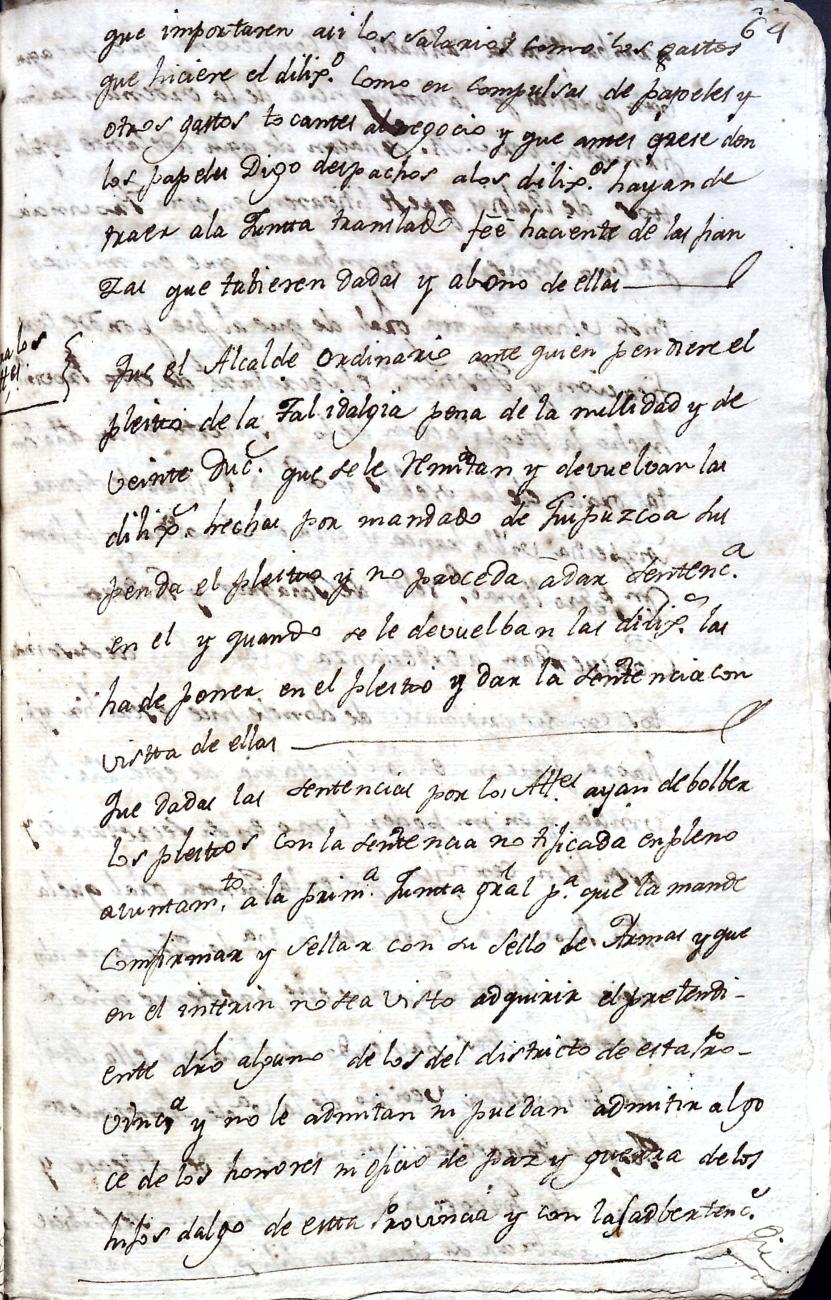 64
que importaren asi los salarios como los gastos
que hiciere el dilix.o como en compulsas de papeles y
otros gastos tocantes al negocio y que antes q.e se den
los papeles Digo despachos a los dilix.os hayan de
traer a la Junta translado feé haciente de las fian
zas que tubieren dadas y abono de ellas
Que el Alcalde Ordinario ante quien pendiere el
pleitto de la Fal idalgia pena de la nullidad y de
veinte Duc.s que se le remitan y devuelvan las
dilix.s hechas por mandado de Guipuzcoa sus
penda el pleitto y no proceda à dar sentenc.a
en el y quando se le devuelban las dilix.s las
ha de poner en el pleitto y dar la sentencia con
vistta de ellas
Que dadas las sentencias por los Alt.es ayan debolber
los pleittos con la sentencia notificada en pleno
aiuntam.to a la prim.a Junta gral p.a que la mande
Comfirmar y sellar con su sello de Armas y que
en el interin no sea visto adquirir el pretendi-
ente dró alguno de los del districto de esta Pro-
vinc.a y no le admitan ni puedan admitir a lgo
ce de los honores ni oficio de paz y guerra de los
hijos dalgo de estta Provincia y con las adbertenc.s